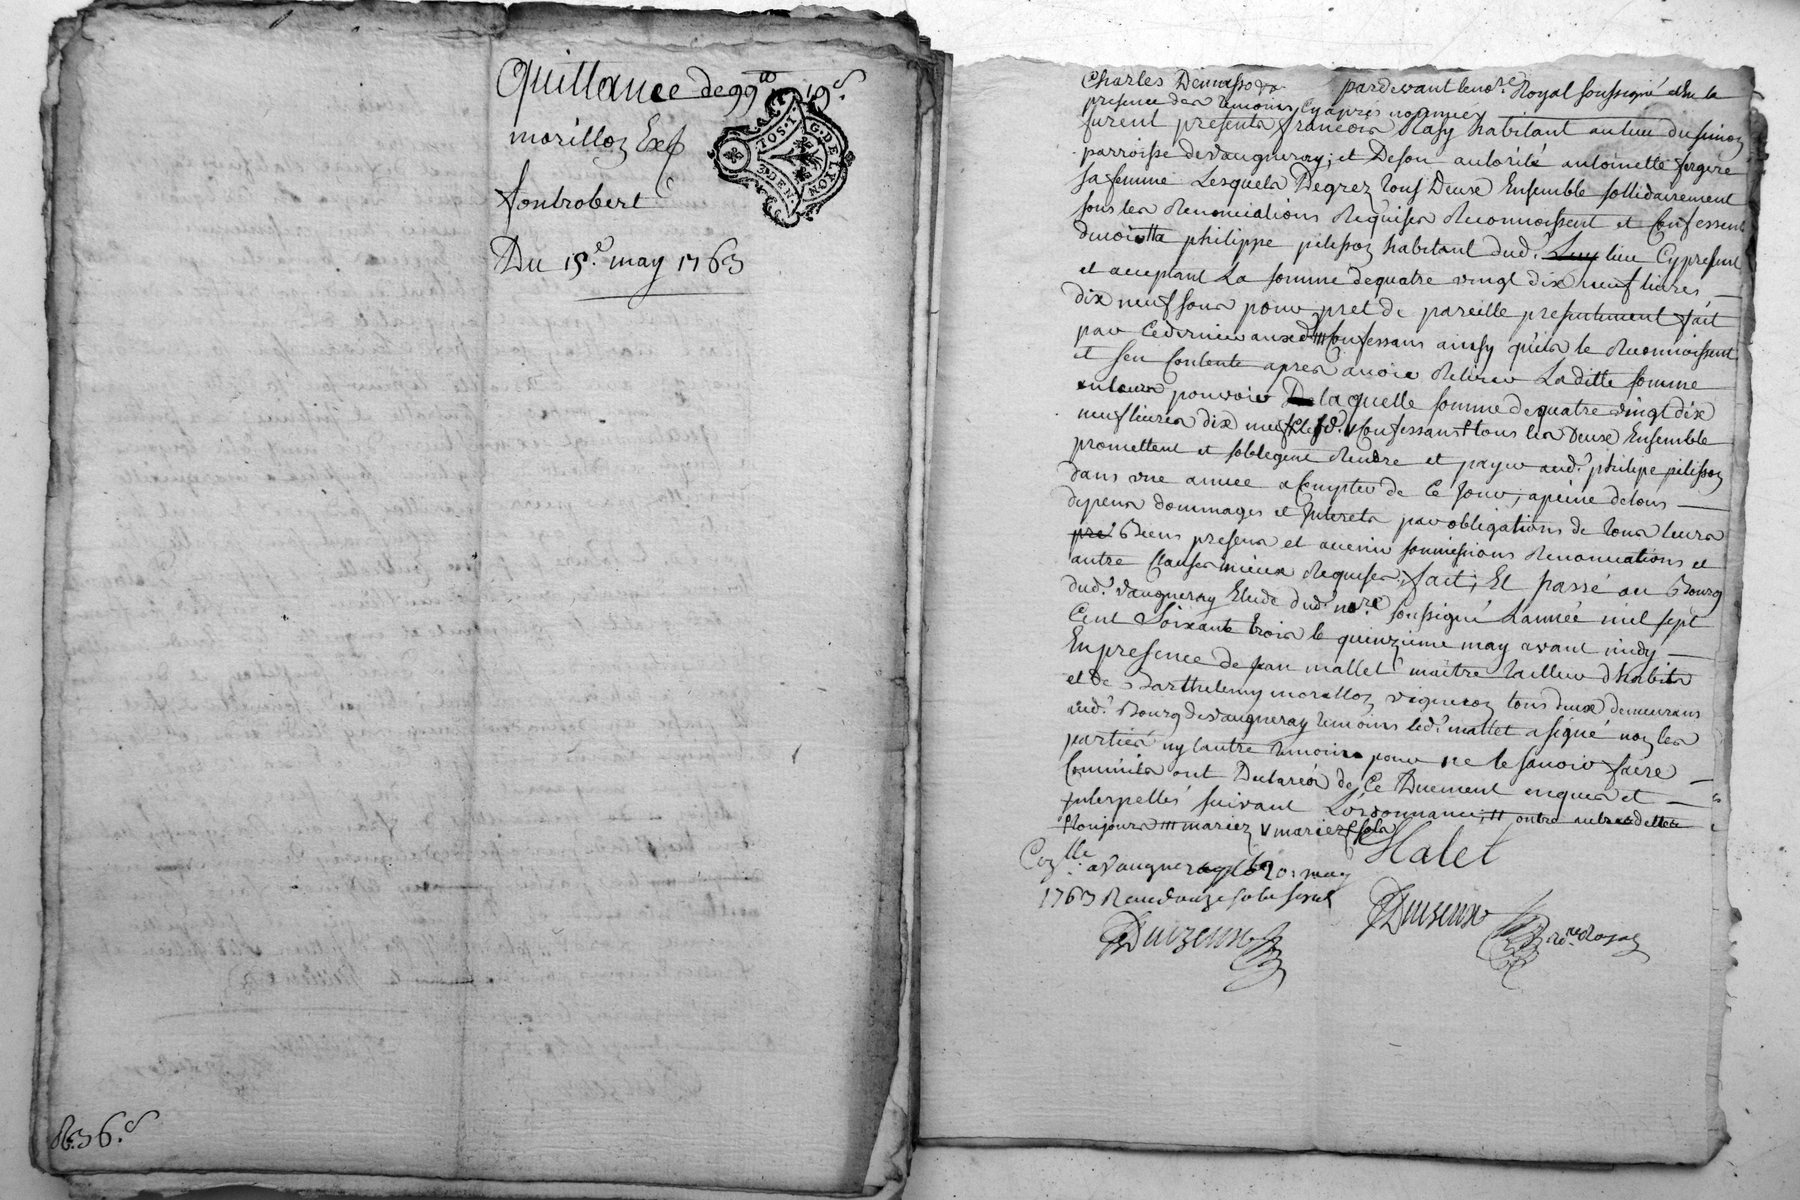 Quittance de 99ᵗᵗ 19ˢ
morillon Exp
fontrobert
Du 15.ᵉ may 1763
G. DE LYON
R. 36.ˢ
Charles pardevant le noʳᵉ Royal soussigné et En la
presence des temoins Cy apres nommés
furent presents francois Rasy habitant au lieu du
parroisse de Vaugneray; et De son autorité antoinette fergere
sa femme Lesquels Degrez tous Deux Ensemble sollidairement
sous les Renonciations Requises Reconnoissent et Confessent
devoir a philippe pelisson habitant dud.ᵗ lieu Cy present
et acceptant La somme de quatre vingt dix neuf livres —
dix neuf sous pour pret de pareille presentement fait
par Ce dernier auxd. Confessans ainsy qu'ils le Reconnoissent
et sen Contente apres avoir Retirer Laditte somme
en leurs pouvoir De laquelle somme de quatre vingt dix
neuf livres dix neuf sols lesd. Confessants tous les Deux Ensemble
promettent et sobligent Rendre et payer aud.ᵗ philipe pelisson
dans une année a Compter de Ce Jour, a peine de tous —
depens dommages et Interets par obligations de tous leurs
pre Biens presens et avenir soumissions Renonciations et
autre Clauses mieux Requises, fait; Et passé au Bourg
dud.ᵗ Vaugneray Etude dud.ᵗ noʳᵉ soussigné Lannée mil sept
Cent Soixante trois le quinzieme may avant midy —
En presence de jean mallet maitre tailleur d'habits
et de Barthelemy morillon vigneron tous deux demeurans
aud.ᵗ Bourg de Vaugneray temoins led.ᵗ mallet a signé non les
parties ny lautre temoins pour ne le savoir faire —
Comme ils ont Declarés de Ce Duement enquis et —
Interpellés suivant L'ordonnance, outre autre dette
toujours mariez v mariez sols
Halet
Conᵗˡˡᵉ a Vaugneray le 20 may
1763 Reçu douze sols
Duizeux
Duizeux
noʳᵉ Royal